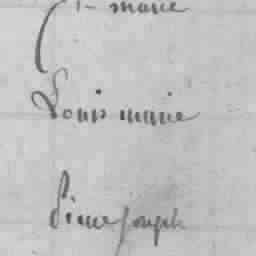 marie
Louis marie
Pierre joseph